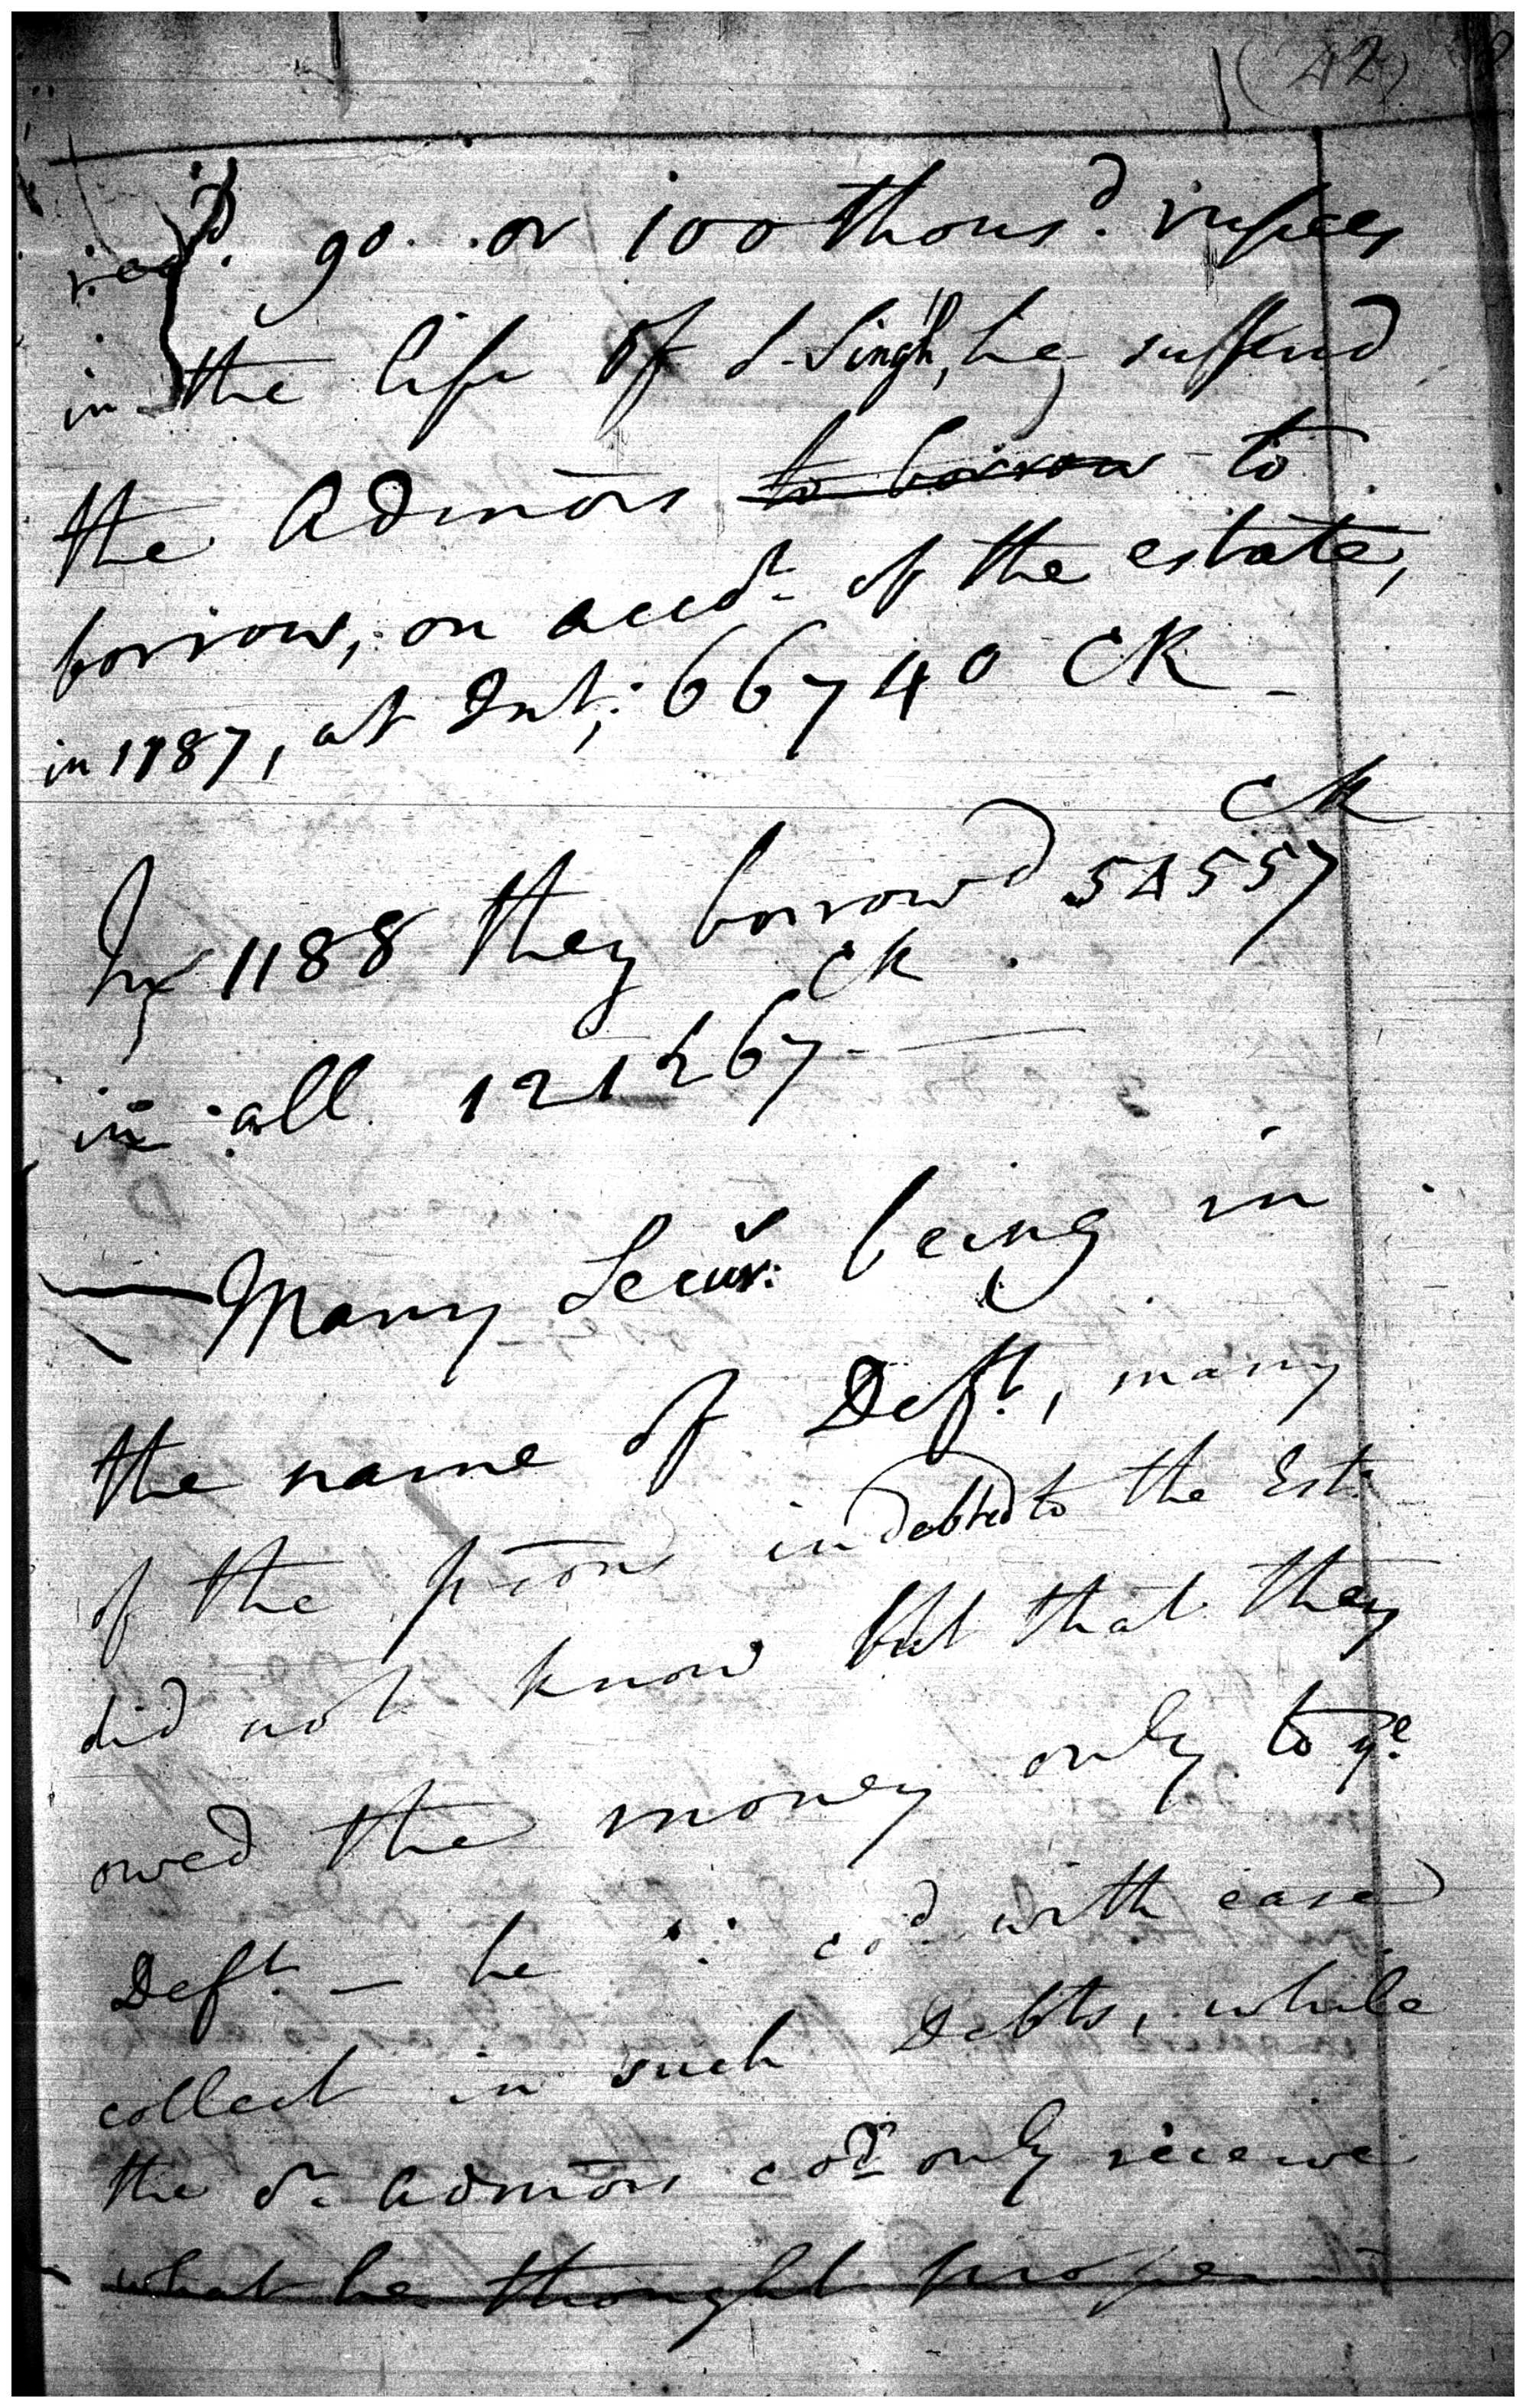 (42)
rec.d 90 or 100 thous.d rupees
in the life of S. Singh, he suffer'd
the Admors to borrow to
borrow, on acco.t of the estate,
in 1187, at Int; 66740 CR
CR
In 1188 they borrow'd 54557
CR
in all 121267
Many Secur: being in
the name of Def.t, many
of the psons indebted to the Est:
did not know but that they
owed the money only to y.e
Def.t — he co.d with ease
collect in such Debts, while
the s.d admors co.d only receive
what he thought proper